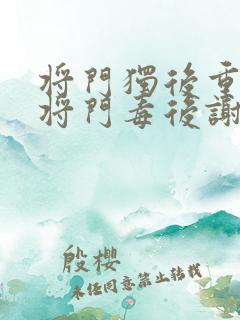 將門獨後重
將門毒後謝
殷櫻
未經同意禁止轉載